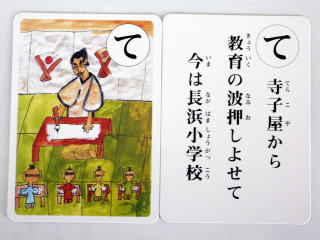 て
て
寺子屋から
教育の波押しよせて
今は長浜小学校
てらこや
きょういく なみお
いま ながはましょうがっこう